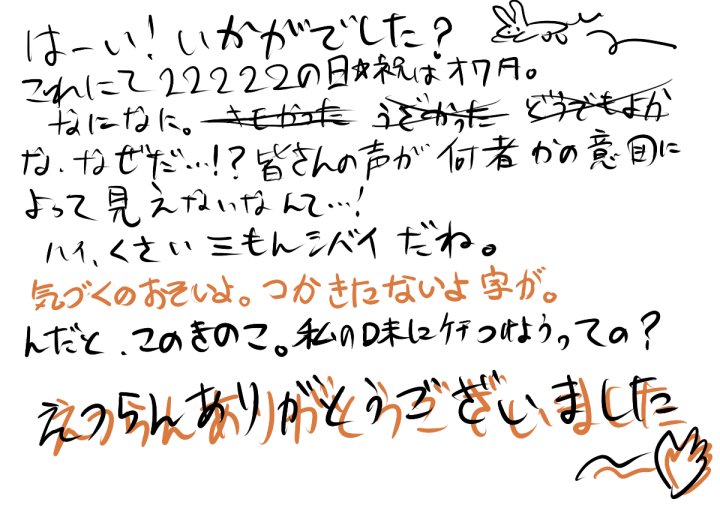 はーい！いかがでした？
これにて22222の日☆祝はオワタ。
なになに。きもかった うざかった どうでもよか
な、なぜだ…！？皆さんの声が何者かの意図に
よって見えないなんて…！
ハイ、くさい三もんシバイだね。
気づくのおそいよ。つかきたないよ字が。
んだと、このきのこ。私の口味にケチつけようっての？
えつらんありがとうございました